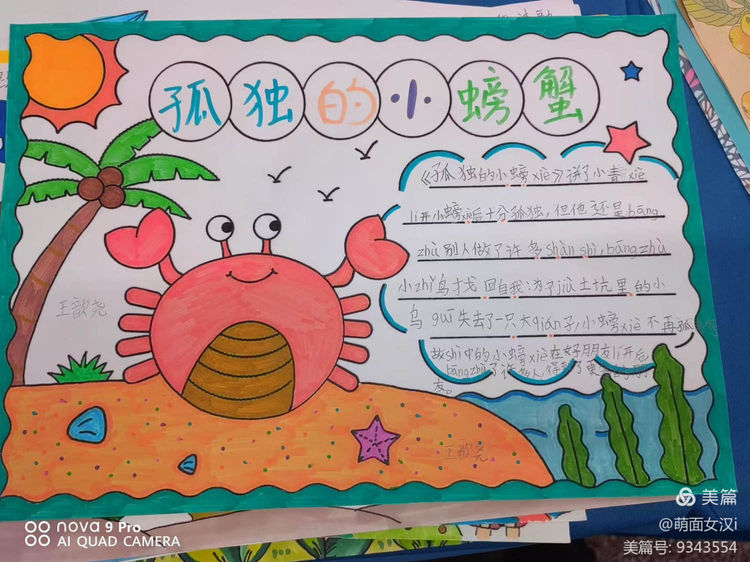 孤独的小螃蟹
《孤独的小螃xiè》讲了小青xiè
lí开小螃xiè后十分孤独,但他还是bāng
zhù别人做了许多shàn shì,bāng zhù
小zhǐ鸟找回自我;为了jiù土坑里的小
乌guī失去了一只大qián子,小螃xiè不再孤
故shì中的小螃xiè在好朋友lí开后
bāng zhù了许多人,得到了更多的朋
友。
王歆尧
王歆尧
nova 9 Pro
AI QUAD CAMERA
美篇
@萌面女汉i
美篇号: 9343554